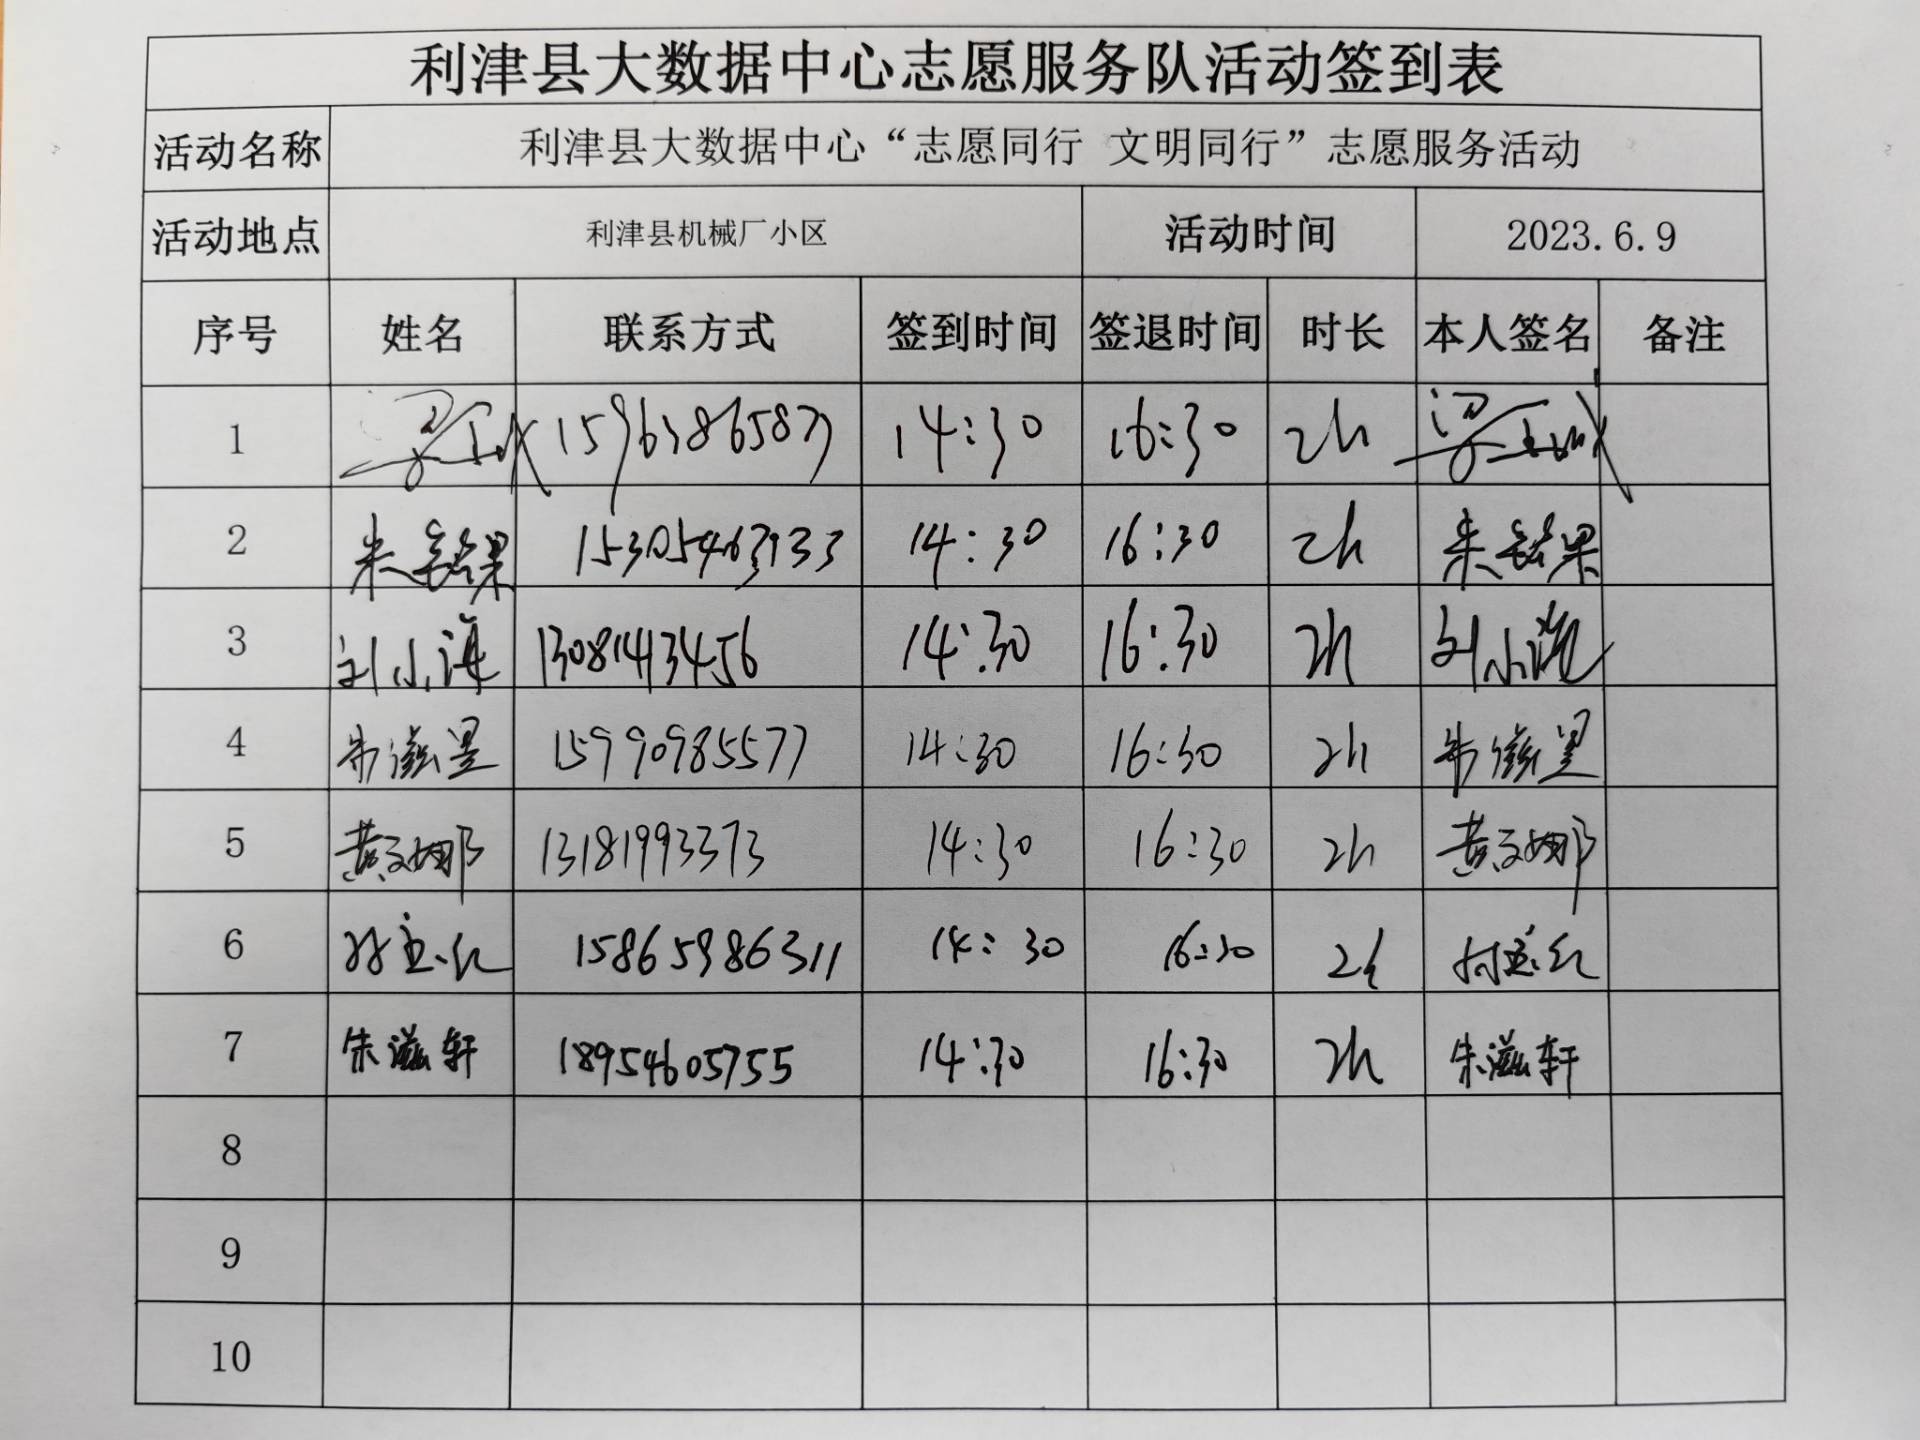 利津县大数据中心志愿服务队活动签到表
活动名称 利津县大数据中心“志愿同行 文明同行”志愿服务活动
活动地点 利津县机械厂小区 活动时间 2023.6.9
序号 姓名 联系方式 签到时间 签退时间 时长 本人签名 备注
1 15963865877 14:30 16:30 2h
2 15305463933 14:30 16:30 2h
3 刘小海 13081413456 14:30 16:30 2h 刘小海
4 15990985577 14:30 16:30 2h
5 13181993373 14:30 16:30 2h
6 15865986311 14:30 16:30 2h
7 朱滋轩 18954605755 14:30 16:30 2h 朱滋轩
8
9
10